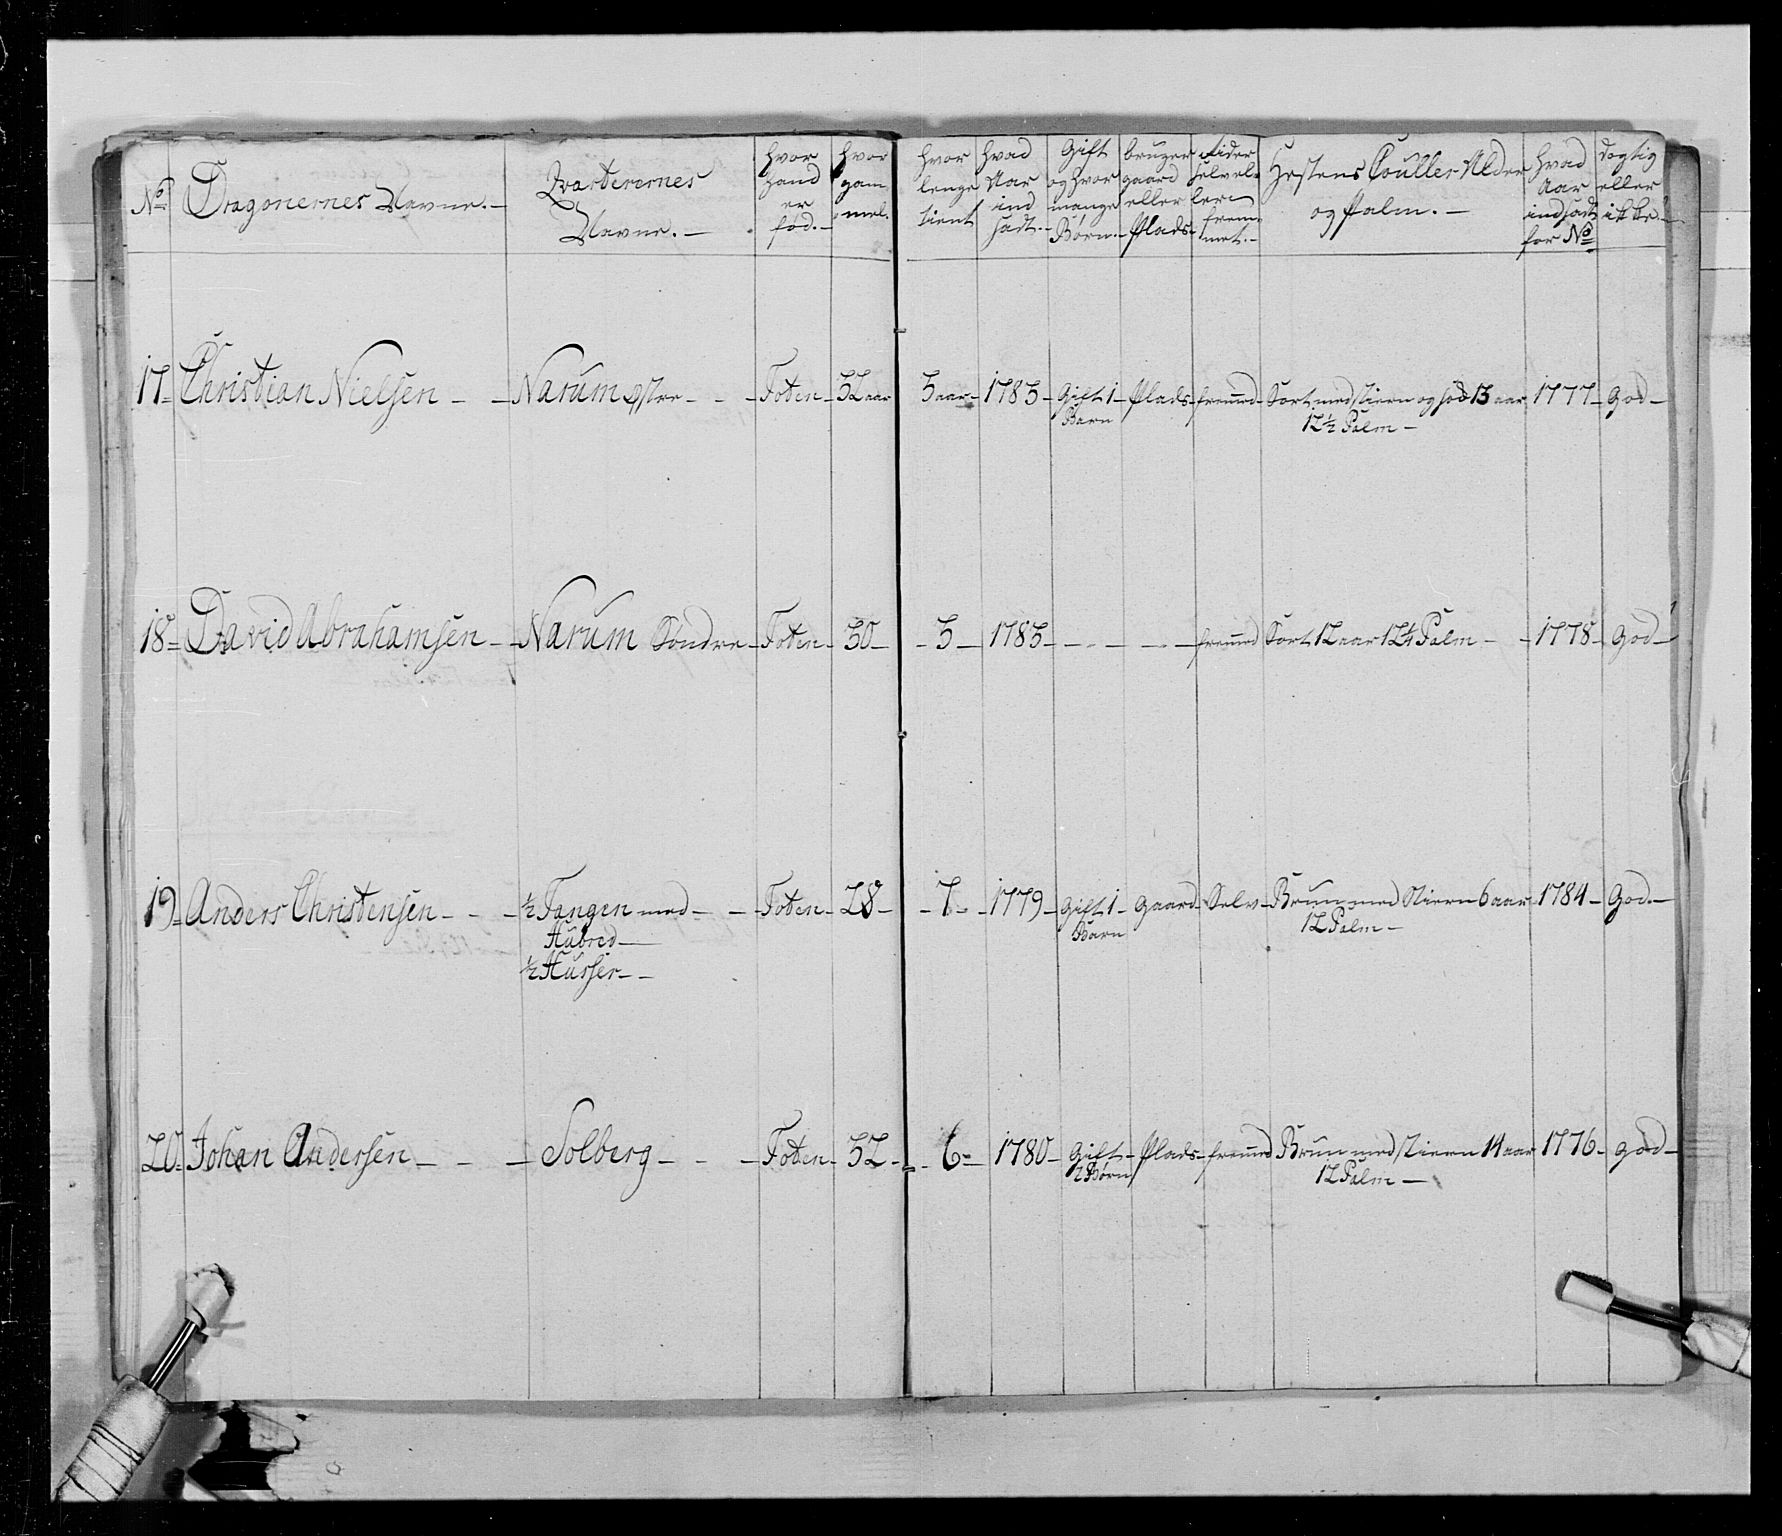 No
Dragonernes Navne.
Qvarterernes
Navne.
hvor
hand
er
fød.
hvor
gam
mel.
hvor
lenge
tient
hvad
Aar
ind
sadt.
Gift
og hvor
mange
Børn.
bruger
gaard
eller
Plads
Rider
selv el-
ler
frem-
met.
Hestens Couller Alder
og Palm.
hvad
Aar
indsadt
for No
dogtig
eller
ikke.
17 Christian Nielsen - - Narum Østre - - - Foten - 32 aar 3 aar - 1783 - Gift 1 - Plads - fremmed - Sort med stiern og sod 13 aar 1777 - God -
Barn 12½ Palm -
18 - David Abrahamsen - - Narum Søndre - Foten - 30 - - 3 - 1783 - - - - - fremmed Sort 12 aar 12¼ Palm - - 1778 - God -
19 - Anders Christensen - - - ½ Tangen med - - Foten - 28 - - 7 - - 1779 - Gift 1 - Gaard - Selv - Brun med Stiern 6 aar 1784 - God. -
Hubred - Barn 12 Palm -
½ Husser - -
20 - Johan Andersen - - - Solberg - - - Foten - 32 - - 6 - 1780 - Gift - Plads - fremmed Brun med stiern 14 aar 1776 - god -
2 Børn 12 Palm -